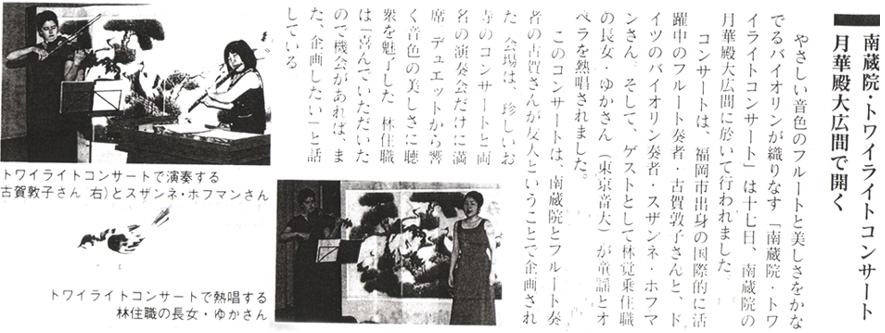 南蔵院・トワイライトコンサート
月華殿大広間で開く
やさしい音色のフルートと美しさをかな
でるバイオリンが織りなす「南蔵院・トワ
イライトコンサート」は十七日、南蔵院の
月華殿大広間に於いて行われました。
コンサートは、福岡市出身の国際的に活
躍中のフルート奏者・古賀敦子さんと、ド
イツのバイオリン奏者・スザンネ・ホフマ
ンさん。そして、ゲストとして林覚乗住職
の長女・ゆかさん（東京音大）が童謡とオ
ペラを熱唱されました。
このコンサートは、南蔵院とフルート奏
者の古賀さんが友人ということで企画され
た 会場は、珍しいお
寺のコンサートと両
名の演奏会だけに満
席 デュエットから響
く音色の美しさに聴
衆を魅了した 林住職
は「喜んでいただいた
ので機会があれば、ま
た、企画したい」と話
している
トワイライトコンサートで演奏する
古賀敦子さん 右)とスザンネ・ホフマンさん
トワイライトコンサートで熱唱する
林住職の長女・ゆかさん